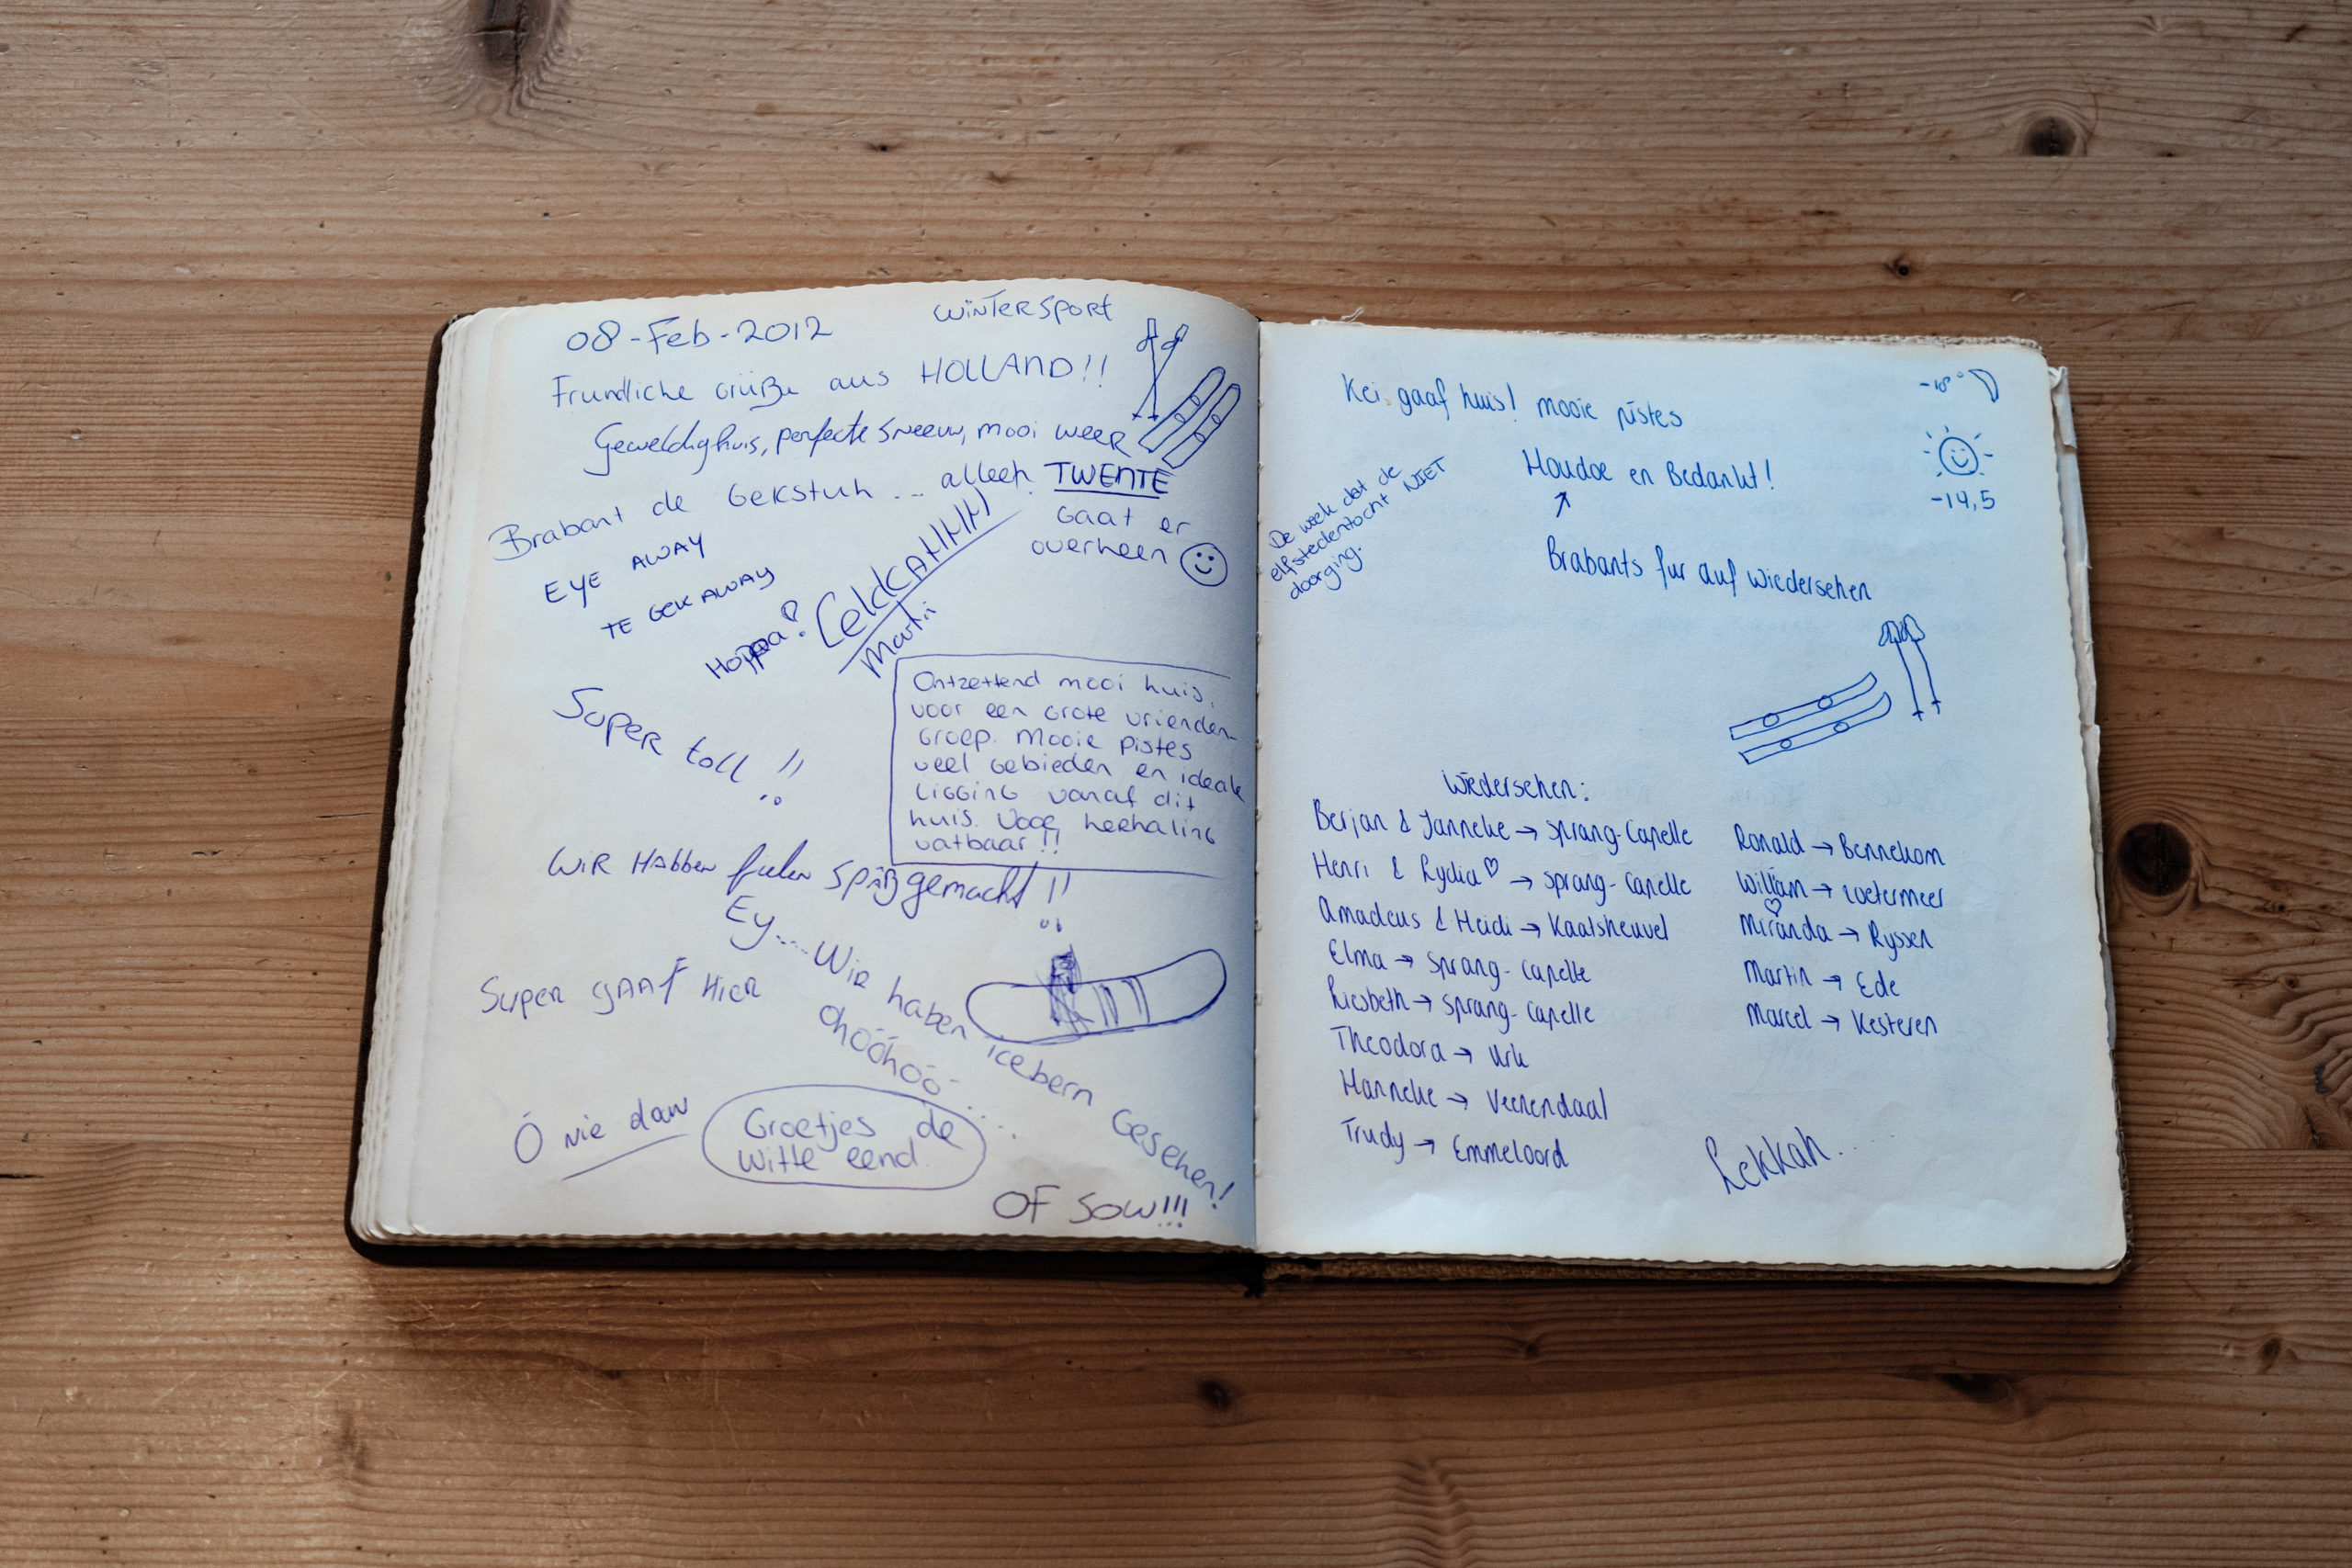 08-Feb-2012
WINTERSPORT
Frundliche Grüße aus HOLLAND!!
Geweldig huis, perfecte sneeuw, mooi weer
Brabant de Gekstuh... alleen TWENTE
Gaat er
overheen
EYE AWAY
TE GEK AWAY
Hoppa!
LekkAHHH
Martin
Super toll !!
Ontzettend mooi huis,
voor een grote vrienden-
groep. Mooie pistes
veel gebieden en ideale
ligging vanaf dit
huis. Voor herhaling
vatbaar!!
WiR HAbben fielen SpAß gemacht !!
Ey.... Wir haben icebern Gesehen!
Super gAAf Hier
ohóóhóó....
Ó nie dan
Groetjes de
Witte eend
OF SOW!!!
Kei gaaf huis! mooie pistes
-18°
-14,5
Houdoe en Bedankt!
Brabants fur auf wiedersehen
De week dat de
elfstedentocht NIET
doorging.
Wiedersehen:
Berjan & Janneke → Sprang-Capelle
Henri & Lydia → Sprang-Capelle
Amadeus & Heidi → Kaatsheuvel
Elma → Sprang-Capelle
Liesbeth → Sprang-Capelle
Theodora → Urk
Hanneke → Veenendaal
Trudy → Emmeloord
Ronald → Bennekom
William → Zoetermeer
Miranda → Ryssen
Martin → Ede
Marcel → Kesteren
Lekkah...